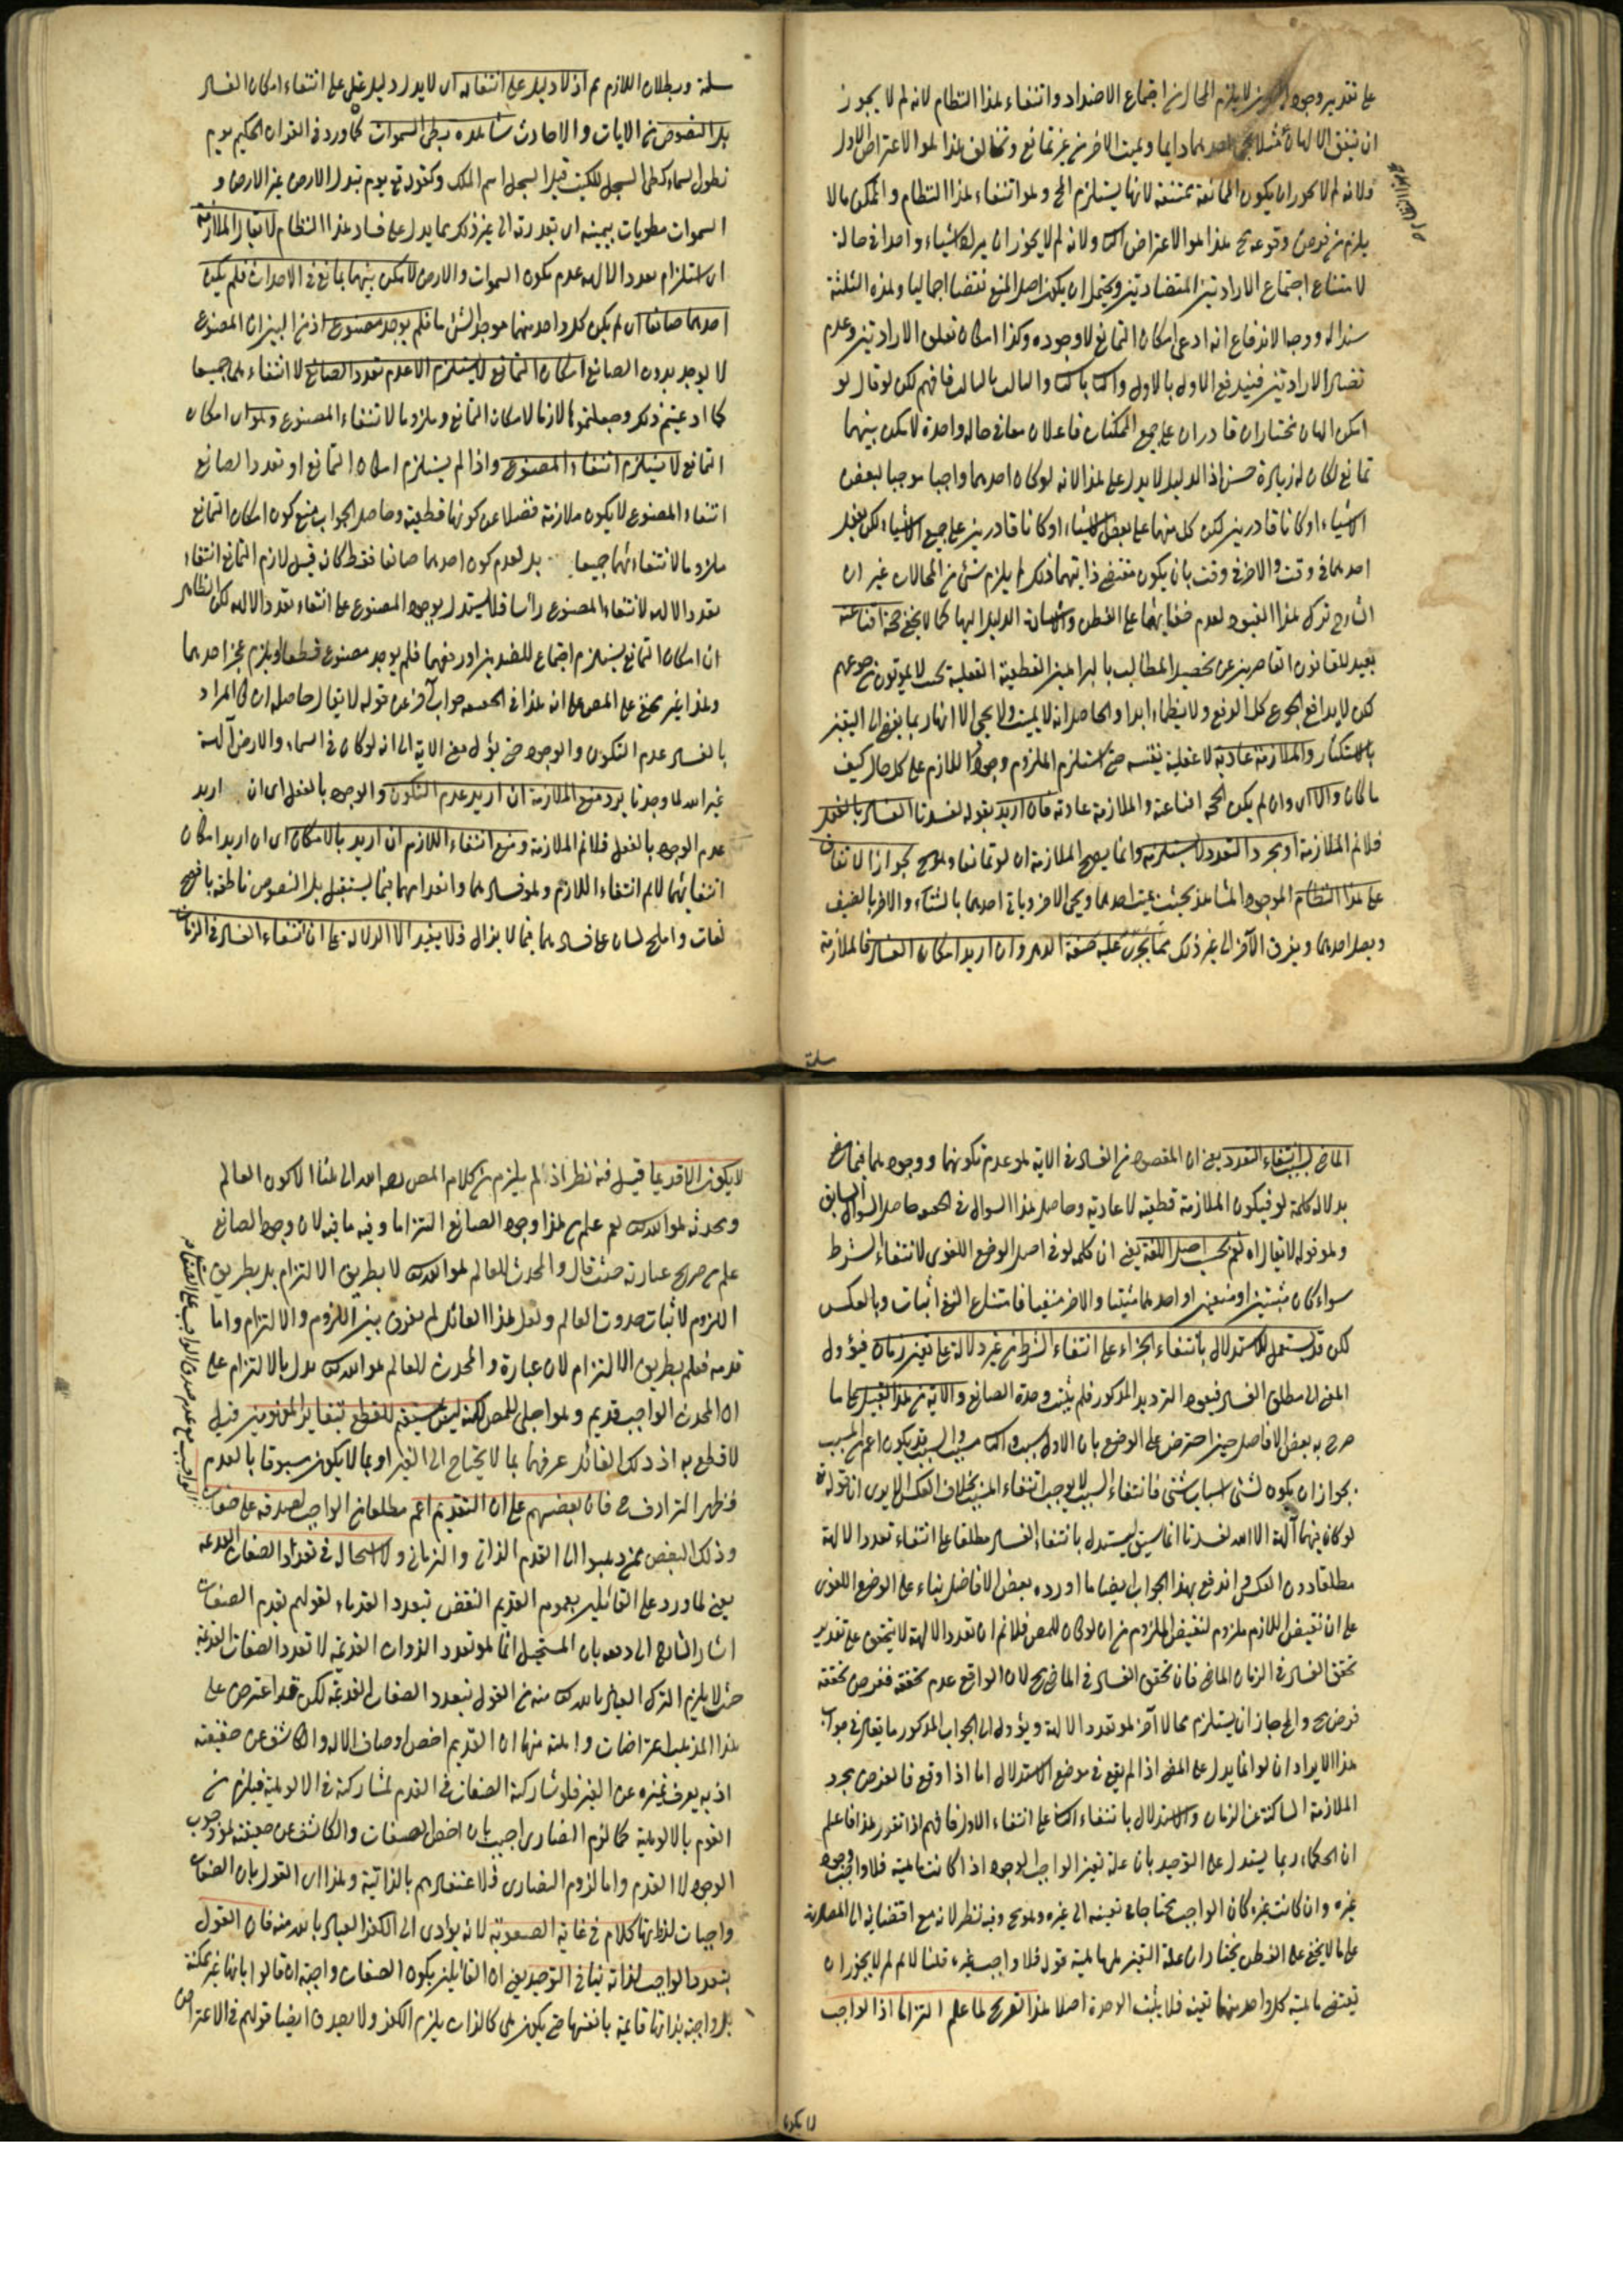 على تقدير وجود لا يلزم المحال من اجتماع الاضداد وانتفاء هذا النظام لانه لم لا يجوز
ان يتفق الالهان مثلا احدهما دايما ويميت الاخر من غير تمانع وتخالف هذا هو الاعتراض الاول
ولانه لم لا يجوز ان يكون الممانعة ممتنعة لانها يستلزم المح وهو انتفاء هذا النظام والممكن ما لا
يلزم من فرض وقوعه مح هذا هو الاعتراض الثا ولانه لم لا يجوز ان يريد الاشياء واحدا في حالة
لامتناع اجتماع الارادتين المتضادتين ويحتمل ان يكون اصل المنع نقضا اجماليا وهذه الثلثة
سندا له ووجه الاندفاع انه ادعى امكان التمانع لا وجوده وكذا امكان تعلق الارادتين وعدم
تضاد الارادتين فيندفع الاول بالاول والثا بالثا والثالث بالثالث فافهم لكن لو قال لو
امكن الهان مختاران قادران على جميع الممكنات فاعلان معا في حالة واحدة لامكن بينهما
تمانع لكان له زيادة حسن اذ الدليل لا يدل على هذا لانه لو كان احدهما واجبا موجبا لبعض
الاشياء او كانا قادرين لكن كل منهما على بعض الاشياء او كانا قادرين على جميع الاشياء لكن يفعل
احدهما في وقت والاخر في وقت بان يكون مقتضى ذاتيهما ذلك لم يلزم شئ من المحالات غير ان
الشارح ترك هذا القيود لعدم خفائها على الفطن والدليل اليها كما لا يخفى حجة اقناعية
يفيد للقانون القاصرين عن تحصيل المطالب بالبراهين القطعية العقلية بحيث لا يموتون من جوعهم
لكن لا يدافع الجوع كل الدفع ولا ينظماء ابدا والحاصل انه لا يميت ولا يحيى الا انه ربما يفضى الى اليقين
بالاستكثار والملازمة عادية لا عقلية حتى استلزم الملزوم وجود اللازم على كل حال كيف
ما كان والا اى وان لم يكن الحجة اقناعية والملازمة عادية فان اريد بقوله لفسدتا الفساد بالفعل
فلانم الملازمة اذ مجرد التعدد لا يستلزمه وانما يصح الملازمة ان لو تمانعا وهو مح لجواز الاتفاق
على هذا النظام الموجود المشاهد بحيث يميت احدهما ويحيى الاخر وياتى احدهما بالشتاء والاخر بالصيف
ويصل احدهما ويفرق الآخر الى غير ذلك مما يجرى عليه صنعة الدهر وان اريد امكان الفساد فالملازمة
مسلمة
مسلمة وبطلان اللازم مم اذ لا دليل على انتفائه اى لا يدل دليل عقلى على انتفاء امكان الفساد
بل النصوص من الايات والاحاديث شاهدة بطى السموات كما ورد في القران الحكيم يوم
نطوى السماء كطى السجل للكتب قيل السجل اسم الملك وكقوله تع يوم تبدل الارض غير الارض و
السموات مطويات بيمينه اى بقدرته الى غير ذلك مما يدل على فساد هذا النظام لا يقال الملازمة
اى استلزام تعدد الالهه عدم تكون السموات والارض لامكن بينهما تمانع في الاحداث فلم يكن
احدهما صانعا اى لم يكن كل واحد منهما موجد الشئ ما فلم يوجد مصنوع اذ من البين ان المصنوع
لا يوجد بدون الصانع امكان التمانع لا يستلزم الا عدم تعدد الصانع لا انتفاء هما جميعا
كما ادعيتم ذلك وجعلتموها لازما لامكان التمانع وملزوما لانتفاء المصنوع وهو اى امكان
التمانع لا يستلزم انتفاء المصنوع واذا لم يستلزم امكان التمانع او تعدد الصانع
انتفاء المصنوع لا يكون ملازمة فضلا عن كونها قطعية وحاصل الجواب منع كون امكان التمانع
ملزوما لانتفائهما جميعا بل لعدم كون احدهما صانعا فقط كانه قيل لازم التمانع انتفاء
تعدد الاله لا انتفاء المصنوع رأسا فلا يستدل بوجود المصنوع على انتفاء تعدد الاله لكن الظاهر
ان امكان التمانع يستلزم اجتماع للضدين او رفعهما فلم يوجد مصنوع قطعا او يلزم عجز احدهما
وهذا غير مخفى على المص على انه هذا في الحقيقه جواب آخر عن قوله لا يقال حاصله ان كان المراد
بالفساد عدم التكون والوجود حتى يؤل معنى الاية الى انه لو كان في السماء والارض آلهة
غير الله لما وجدتا يرد منع الملازمة ان اريد عدم التكون والوجود بالفعل اى ان اريد
عدم الوجود بالفعل فلانم الملازمة ومنع انتفاء اللازم ان اريد بالامكان اى ان اريد امكان
انتفائهما لانم انتفاء اللازم وهو فسادهما وانعدامهما فيما يستقبل بل النصوص ناطقة بافصح
لغات واملح لسان على فسادهما فيما لا يزال فلا يفيد الا الدلالة على ان انتفاء الفساد في الزمان
الماضى بسبب انتفاء التعدد يعنى ان المقصود من الفساد في الاية هو عدم تكونهما ووجودهما فيما مضى
بدلالة كلمة لو فيكون الملازمة قطعية لا عادية وحاصل هذا السوال في الحقيقه حاصل السوال السابق
وهو قوله لا يقال اه نعم بحسب اصل اللغة يعنى ان كلمة لو في اصل الوضع اللغوى لانتفاء الشرط
سواء كان مثبتين او منفيين او احدهما مثبتا والاخر منفيا فامتناع النفى اثبات وبالعكس
لكن قد يستعمل للاستدلال بانتفاء الجزاء على انتفاء الشرط من غير دلالة على تعيين زمان فيؤول
المعنى الى مطلق الفساد فيعود الترديد المذكور فلم يثبت وحدة الصانع والاية من هذا القبيل على ما
صرح به بعض الافاضل حين اعترض على الوضع بان الاول سبب والثا مسبب والسبب قد يكون اعم من المسبب
بجواز ان يكون لشئ اسباب شتى فانتفاء السبب لا يوجب انتفاء المسبب بخلاف العكس الا يرى ان قوله تع
لو كان فيهما آلهة الا الله لفسدتا انما سيق ليستدل بانتفاء الفساد مطلقا على انتفاء تعدد الالهة
مطلقا دون العكس واندفع بهذا الجواب ايضا ما اورده بعض الافاضل بناء على الوضع اللغوى
على ان نقيض اللازم ملزوم لنقيض الملزوم من ان لو كان للمص فلانم ان تعدد الالهة لا يتحقق على تقدير
تحقق الفساد في الزمان الماضى فان تحقق الفساد في الماضى مح لان الواقع عدم تحققه ففرض تحققه
فرض مح والمح جاز ان يستلزم محالا آخر هو تعدد الالهة ويؤول الى الجواب المذكور ما يقال في جواب
هذا الايراد ان لو انما يدل على المضى اذا لم يقع في موضع الاستدلال اما اذا وقع فالغرض مجرد
الملازمة الساكتة عن الزمان والاستدلال بانتفاء الثا على انتفاء الاول فافهم اذا تقرر هذا فاعلم
ان الحكماء ربما يستدل على التوحيد بان علة تعين الواجب الوجود اذا كانت ماهية فلا واجب وجود
غيره وان كانت غيره كان الواجب محتاجا في تعينه الى غيره وهو مح وفيه نظر لانه مع اقتضائه الى المصادرة
على ما لا يخفى على الفطن يختار ان علة التعين هى الماهية قوله فلا واجب غيره قلنا لانم لم لا يجوز ان
يقتضى ماهية كل واحد منهما تعينه فلا يثبت الوحدة اصلا هذا تصريح لما علم التزاما اذ الواجب
لا يكون
لا يكون الا قديما قيل فيه نظر اذ لم يلزم من كلام المص رحمه الله الى هنا الا كون العالم
ومحدثه هو الله تعم علم من هذا وجود الصانع التزاما وفيه ما فيه لان وجود الصانع
علم من صريح عبارته حيث قال والمحدث للعالم هو الله تع لا بطريق الالتزام بل بطريق
اللزوم لاثبات حدوث العالم ولعل هذا القائل لم يفرق بين اللزوم والالتزام واما
قدمه فعلم بطريق الالتزام لان عبارة والمحدث للعالم هو الله تع يدل بالالتزام على
ان المحدث الواجب قديم وهو اجلى للمص لكنه ليس بمستقيم للقطع بتغاير المفهومين قيل
لا قطع به اذ ذلك القائل عرفهما بما لا يحتاج الى الغير او بما لا يكون مسبوقا بالعدم
فظهر الترادف ح فان بعضهم على ان القديم اعم مطلقا من الواجب لصدقه على صفات
الواجب مع عدم صدق الواجب على الصفات
وذلك البعض ممن ذهبوا الى القدم الذاتى والزمانى ولا استحالة في تعداد الصفات القديمه
يعنى لما ورد على القائلين بعموم القديم النقض بتعدد القدماء لقولهم بقدم الصفات
اشار الشارح الى دفعه بان المستحيل انما هو تعدد الذوات القديمة لا تعدد الصفات القديمة
حيث لا يلزم الشرك العياذ بالله تع منه من القول بتعدد الصفات القديمة لكن قد اعترض على
هذا المذهب اعتراضات واهية منها ان القديم اخص اوصاف الاله والكاشف عن حقيقته
اذ به يعرف تميزه عن الغير فلو شاركه الصفات في القدم لشاركته في الالوهية فيلزم من
القدم بالالوهية كما لزم النصارى اجيب بان اخص الصفات والكاشف عن حقيقته هو وجوب
الوجود لا القدم واما لزوم النصارى فلاعتقادهم بالذاتية وهذا اى القول بان الصفات
واجبات لذاتها كلام في غاية الصعوبة لانه يؤدى الى الكفر العياذ بالله منه فان القول
بتعدد الواجب لذاته ينافى التوحيد يعنى ان القائلين بكون الصفات واجبة ان قالوا بانها غير ممكنة
بل واجبة بذاتها قائمة بانفسها حتى يكون هى كالذات يلزم الكفر ولا يصدق ايضا قولهم في الاعتراض